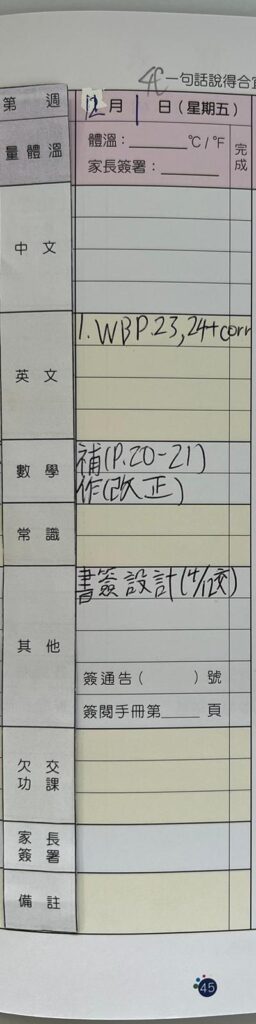 4E
一句話說得合宜
第 週 12月 1 日(星期五)
量體溫 體溫:______°C/°F 完成
家長簽署:______
中文
英文 1. WB P.23, 24+corr
數學 補(P.20-21)
作(改正)
常識
其他 書簽設計(4/12交)
簽通告( )號
簽閱手冊第____頁
欠交功課
家長簽署
備註
45